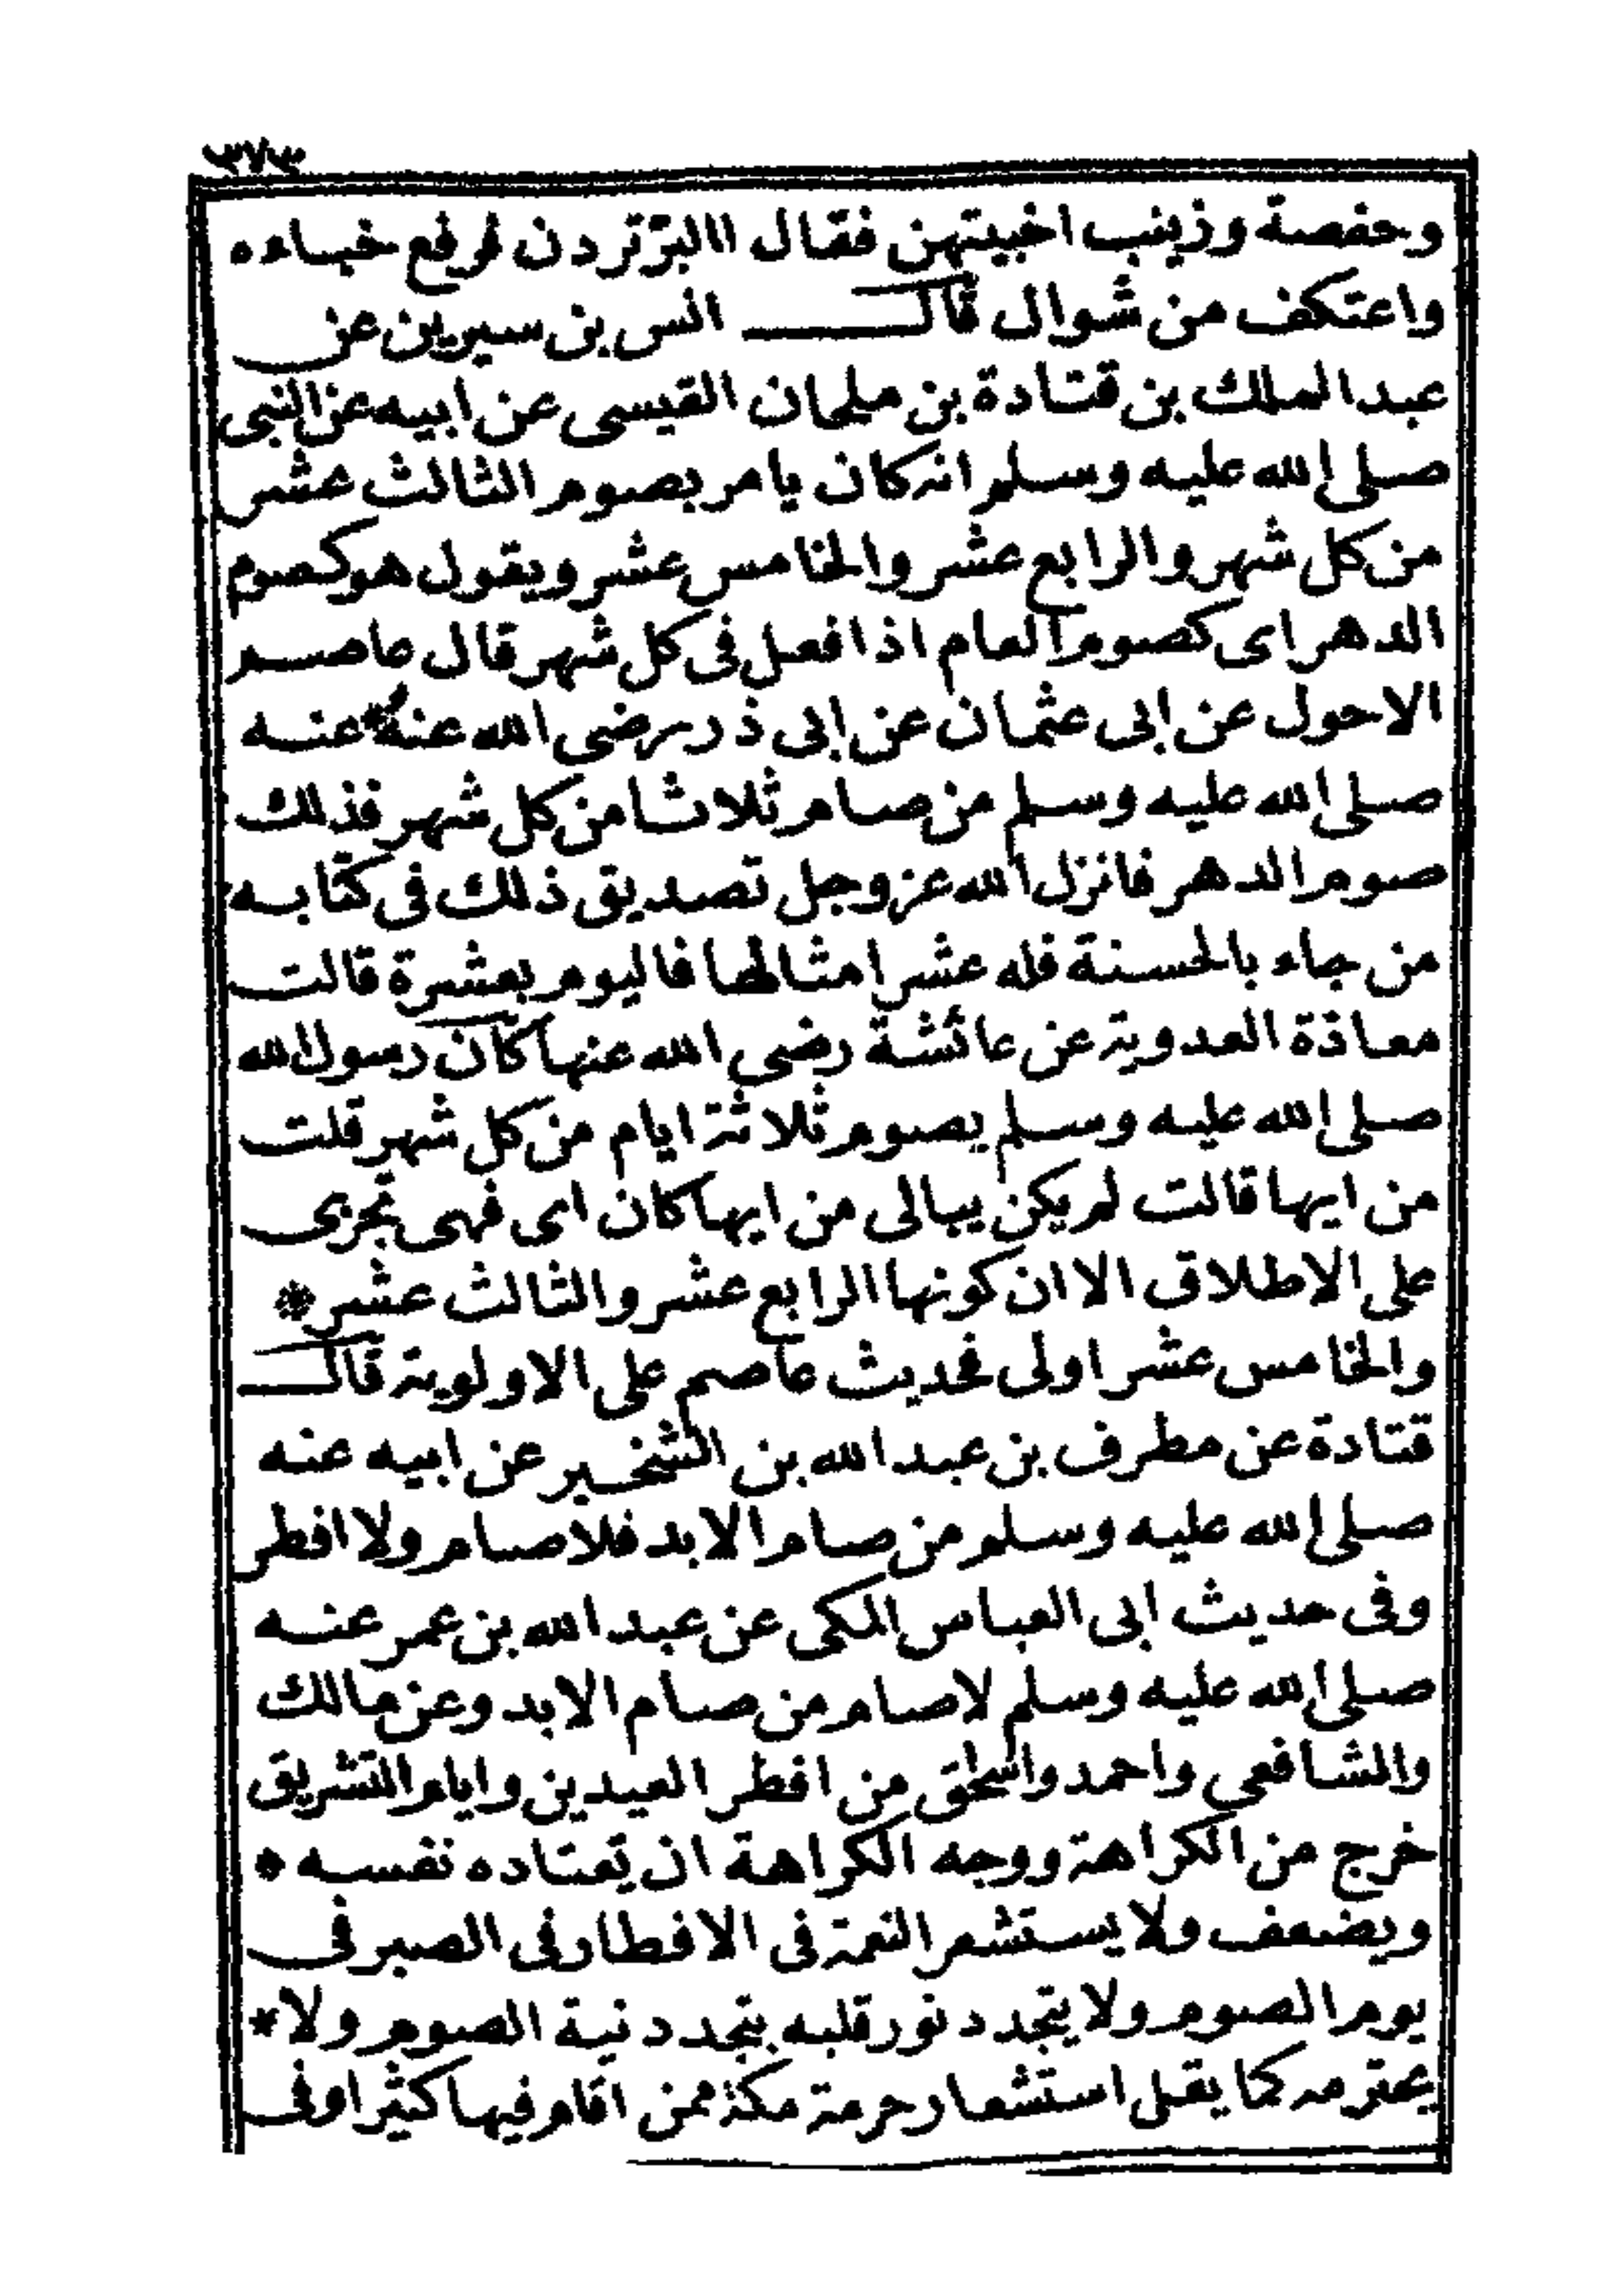 ٣٧٣
وحفصة وزينب اخبيتهن فقال االبرّ تردن فرفع خباءه
واعتكف من شوال قال انس بن سيرين عن
عبد الملك بن قتادة بن ملحان القيسى عن ابيه عن النبى
صلى الله عليه وسلم انه كان يامر بصوم الثالث عشر
من كل شهر والرابع عشر والخامس عشر ويقول هو كصوم
الدهر اى كصوم العام اذا فعل فى كل شهر قال عاصم
الاحول عن ابى عثمان عن ابى ذر رضى الله عنه * عنه
صلى الله عليه وسلم من صام ثلاثا من كل شهر فذلك
صوم الدهر فانزل الله عز وجل تصديق ذلك فى كتابه
من جاء بالحسنة فله عشر امثالها فاليوم بعشرة قالت
معاذة العدوية عن عائشة رضى الله عنها كان رسول الله
صلى الله عليه وسلم يصوم ثلاثة ايام من كل شهر قلت
من ايها قالت لم يكن يبالى من ايها كان اى فهى تجزى
على الاطلاق الا ان كونها الرابع عشر والثالث عشر *
والخامس عشر اولى فحديث عاصم على الاولوية قال
قتادة عن مطرف بن عبد الله بن الشخير عن ابيه عنه
صلى الله عليه وسلم من صام الابد فلا صام ولا افطر
وفى حديث ابى العباس المكى عن عبد الله بن عمر عنه
صلى الله عليه وسلم لا صام من صام الابد وعن مالك
والشافعى واحمد واسحق من افطر العيدين وايام التشريق
خرج من الكراهة ووجه الكراهة ان تعتاده نفسه *
ويضعف ولا يستشعر النعمة فى الافطار فى الصبر فى
يوم الصوم ولا يتجدد نور قلبه بتجدد نية الصوم ولا *
يحترمه كما يقل استشعار حرمة مكة ممن اقام فيها كثيرا وفى